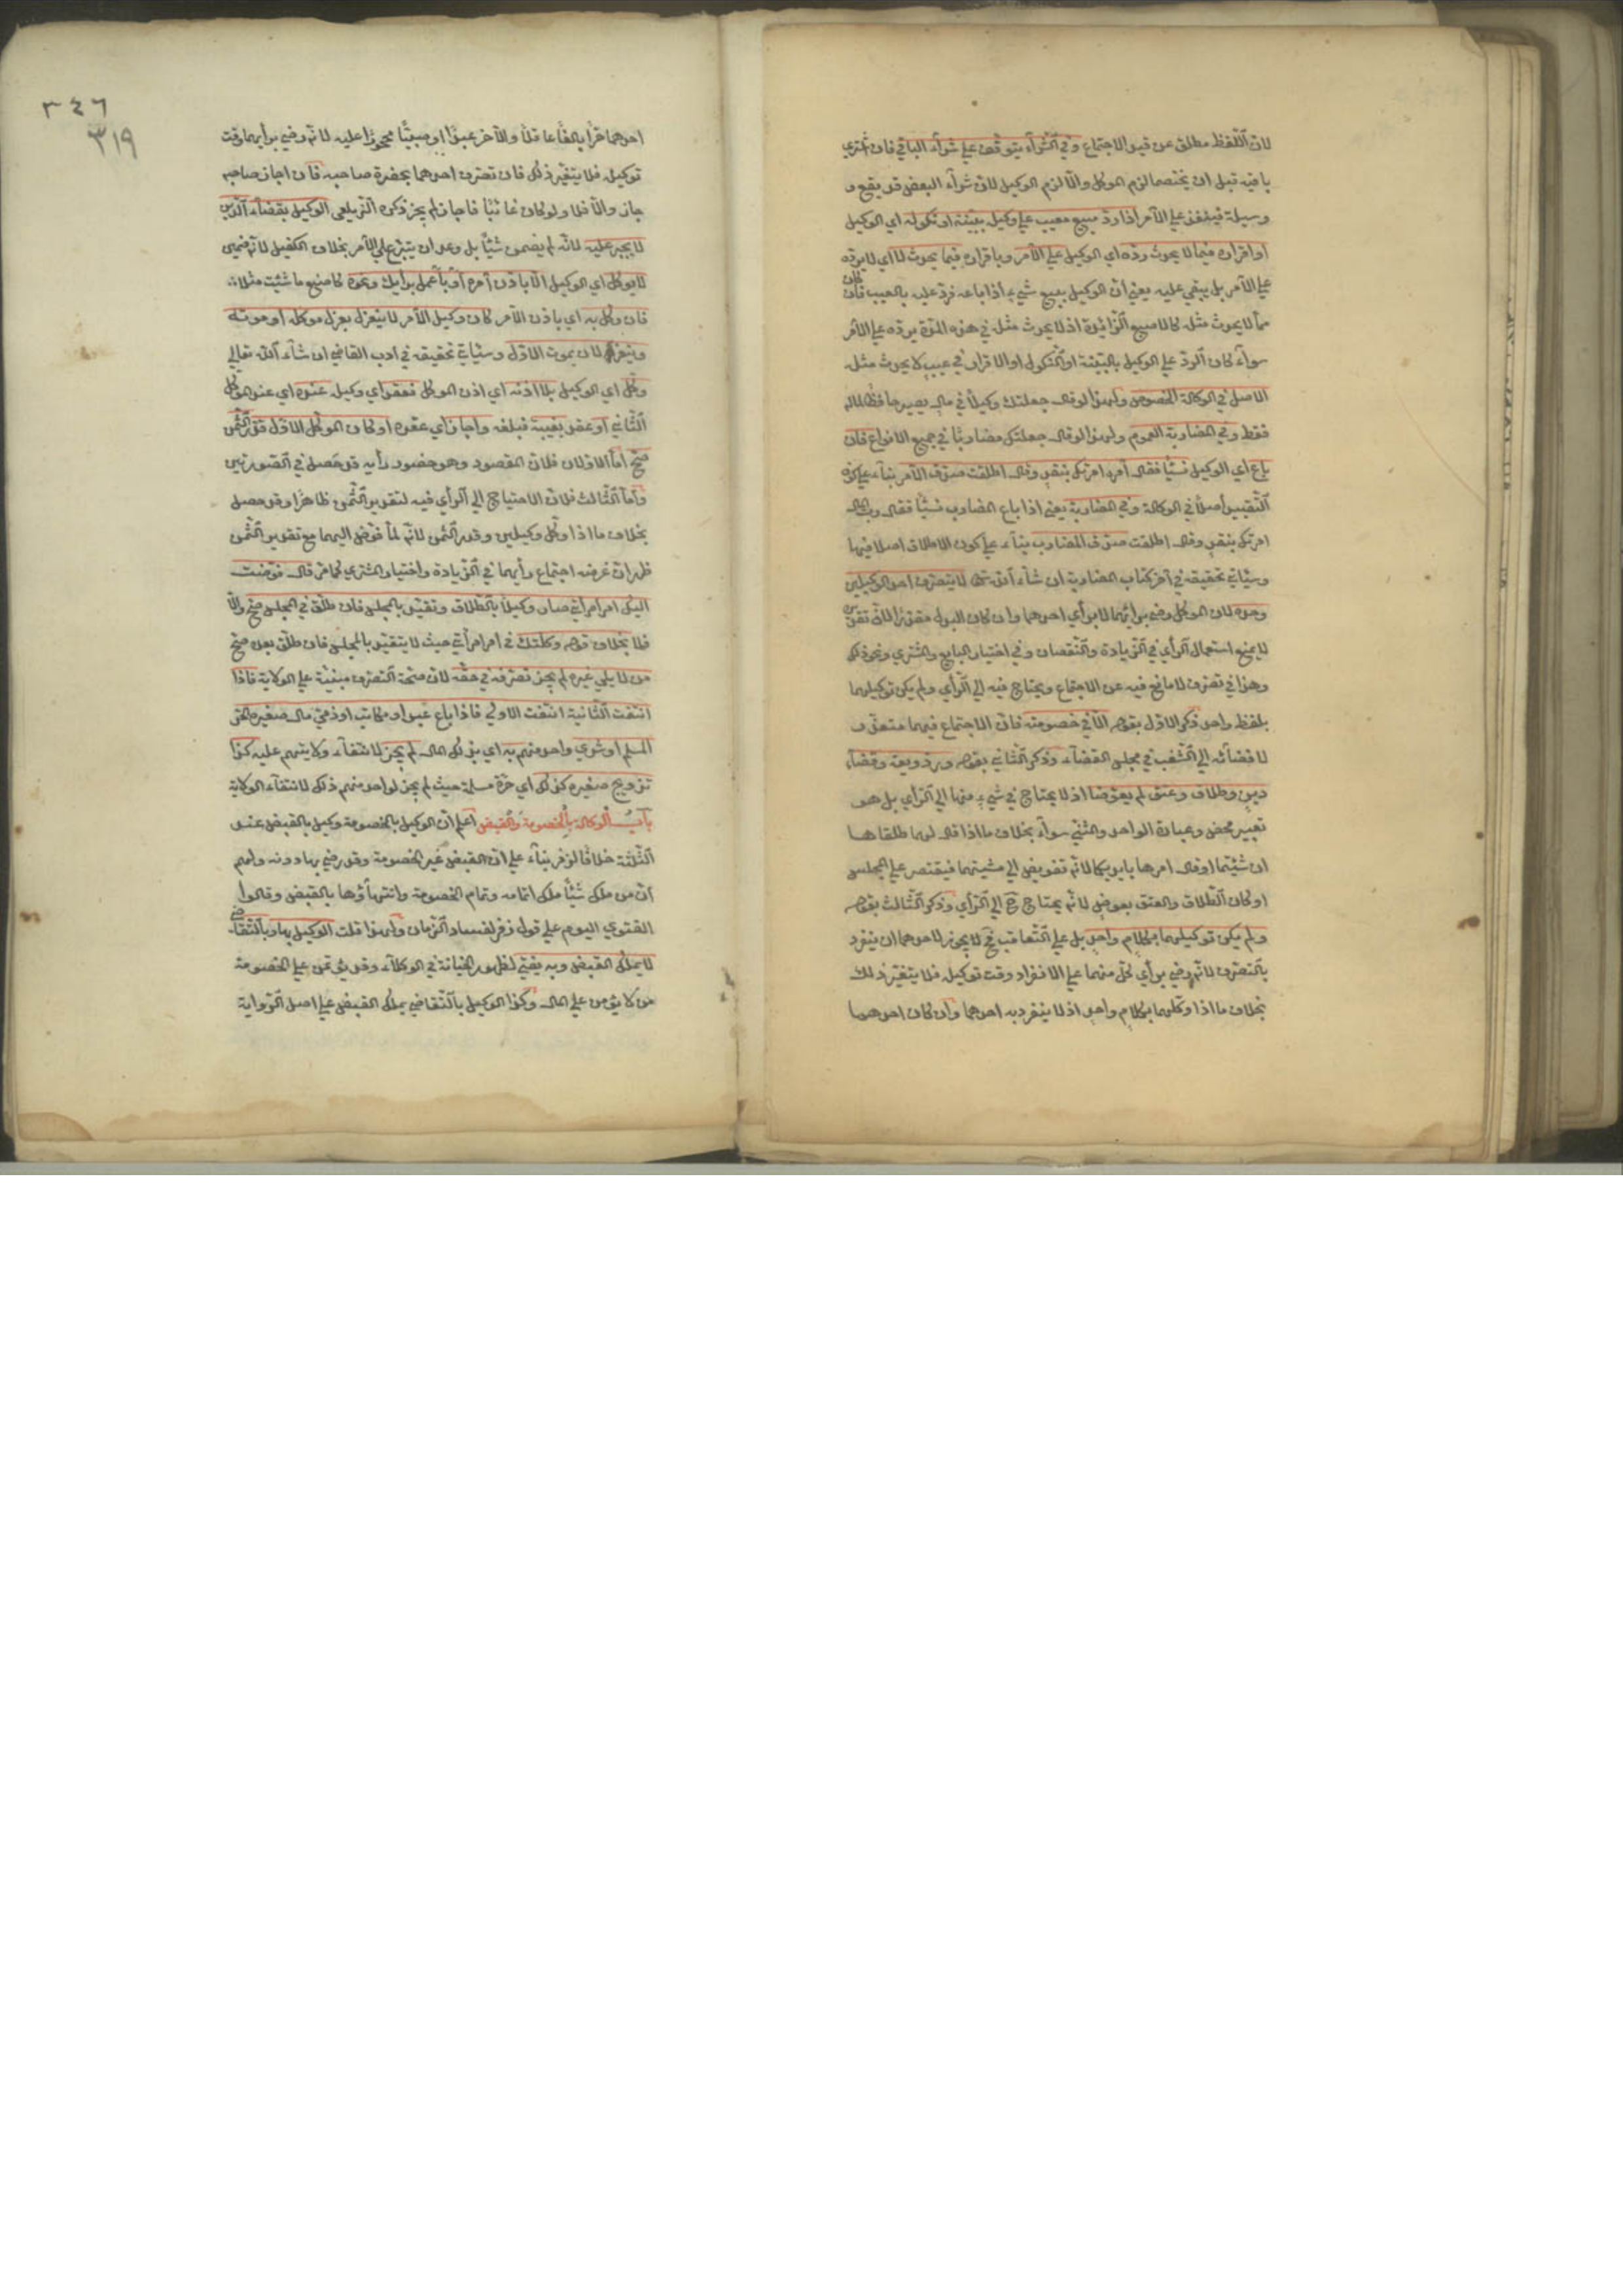 لان اللفظ مطلق عن قيد الاجتماع وفي الشرآء يتوقف علي شرآء الباقي فان اشتري
باقيه قبل ان يختصما لزم الموكل والا لزم الوكيل لان شرآء البعض قد يقع و
وسيلة فينفذ علي الآمر اذا رد مبيع معيب علي وكيل ببينة او نكوله اي الوكيل
او اقراره فيما لا يحدث رده اي الوكيل علي الآمر وباقراره فيما يحدث لا اي لا يرده
علي الآمر بل يبقي عليه يعني ان الوكيل ببيع شيء اذا باعه فرد عليه بالعيب فان كان
مما لا يحدث مثله كالاصبع الزائدة اذ لا يحدث مثله في هذه المدة يرده علي الآمر
سوآء كان الرد علي الوكيل بالبينة او النكول او الاقرار في عيب لا يحدث مثله
الاصل في الوكالة الخصوص ولهذا لو قال جعلتك وكيلا في مالي يصير حافظا لماله
فقط وفي المضاربة العموم ولهذا لو قال جعلتك مضاربا في جميع الانواع فان
باع اي الوكيل نسئا فقال آمره امرتك بنقد وقال اطلقت صدق الآمر بنآء علي كون
التقييد اصلا في الوكالة وفي المضاربة يعني اذا باع المضارب نسئا فقال رب المال
امرتك بنقد وقال اطلقت صدق المضارب بنآء علي كون الاطلاق اصلا فيها
وسيأتي تحقيقه في آخر كتاب المضاربة ان شآء الله تعالى لا يتصرف احد الوكيلين
وحده لان الموكل رضي برأيهما لا برأي احدهما وان كان البدل مقدرا لان تقديره
لا يمنع استعمال الرأي في الزيادة والنقصان وفي اختيار البايع والمشتري ونحو ذلك
وهذا في تصرف لا مانع فيه عن الاجتماع ويحتاج فيه الي الرأي ولم يكن توكيلهما
بلفظ واحد ذكر الاول بقوله الا في خصومة فان الاجتماع فيهما متعذر
لافضائه الي الشغب في مجلس القضآء وذكر الثاني بقوله ورد وديعة وقضآء
دين وطلاق وعتق لم يعوضا اذ لا يحتاج في شيء منها الي الرأي بل هو
تعبير محض وعبارة الواحد والمثني سوآء بخلاف ما اذا قال لهما طلقاها
ان شئتما او قال امرها بايديكما لانه تفويض الي مشيتهما فيقتصر علي المجلس
او كان الطلاق والعتق بعوض لانه يحتاج ح الي الرأي وذكر الثالث بقوله
ولم يكن توكيلهما بكلام واحد بل علي التعاقب ح لا يجوز لاحدهما ان ينفرد
بالتصرف لانه رضي برأي كل منهما علي الانفراد وقت توكيله فلا يتغير ذلك
بخلاف ما اذا وكلهما بكلام واحد اذ لا ينفرد به احدهما وان كان احدهما
٣٤٦
٣١٩
احدهما حرا بالغا عاقلا والآخر عبدا او صبيا محجورا عليه لانه رضي برأيهما وقت
توكيله فلا يتغير ذلك فان تصرف احدهما بحضرة صاحبه فان اجاز صاحبه
جاز والا فلا ولو كان غائبا فاجاز لم يجز ذكره الزيلعي الوكيل بقضآء الدين
لا يجبر عليه لانه لم يضمن شيئا بل وعد ان يتبرع علي الآمر بخلاف الكفيل لانه ضمين
لا يوكل اي الوكيل الا باذن آمره او باعمل برأيك ونحوه كاصنع ما شئت مثلا
فان وكل به اي باذن الآمر كان وكيل الآمر لا ينعزل بعزل موكله او موته
وينعزلان بموت الاول وسيأتي تحقيقه في ادب القاضي ان شآء الله تعالي
وكل اي الوكيل بلا اذنه اي اذن الموكل فعقد اي وكيله عنده اي عند الموكل
الثاني او عقد بغيبة فبلغه واجاز اي عقده او كان الموكل الاول قدر الثمن
صح اما الاولان فلان المقصود وهو حضور رأيه قد حصل في الصورتين
واما الثالث فلان الاحتياج الي الرأي فيه لتقدير الثمن ظاهرا وقد حصل
بخلاف ما اذا وكل وكيلين وقدر الثمن لانه لما فوض اليهما مع تقدير الثمن
ظهر ان غرضه اجتماع رأيهما في الزيادة واختيار المشتري كما مر قال فوضت
اليك امر امرأتي صار وكيلا بالطلاق وتقيد بالمجلس فان طلق في المجلس صح والا
فلا بخلاف قوله وكلتك في امر امرأتي حيث لا يتقيد بالمجلس فان طلق بعده صح
من لا يلي غيره لم يجز تصرفه في حقه لان صحة التصرف مبنية علي الولاية فاذا
انتفت الثانية انتفت الاولي فاذا باع عبد او مكاتب او ذمي مال صغيره الحر
المسلم او شري واحد منهم به اي بذلك المال لم يجز لانتفآء ولايتهم عليه كذا
تزويج صغيره كذلك اي حرة مسلمة حيث لم يجز لواحد منهم ذلك لانتفآء الولاية
باب الوكالة بالخصومة والقبض اعلم ان الوكيل بالخصومة وكيل بالقبض عند
الثلثة خلافا لزفر بنآء علي ان القبض غير الخصومة وقد رضي بها دونه ولهم
ان من ملك شيئا ملك اتمامه وتمام الخصومة وانتهاؤها بالقبض وقالوا
الفتوي اليوم علي قول زفر لفساد الزمان ولهذا قلت الوكيل بها وبالتقاضي
لا يملك القبض وبه يفتي لظهور الخيانة في الوكلآء وقد يؤتمن علي الخصومة
من لا يؤمن علي المال وكذا الوكيل بالتقاضي يملك القبض علي اصل الرواية